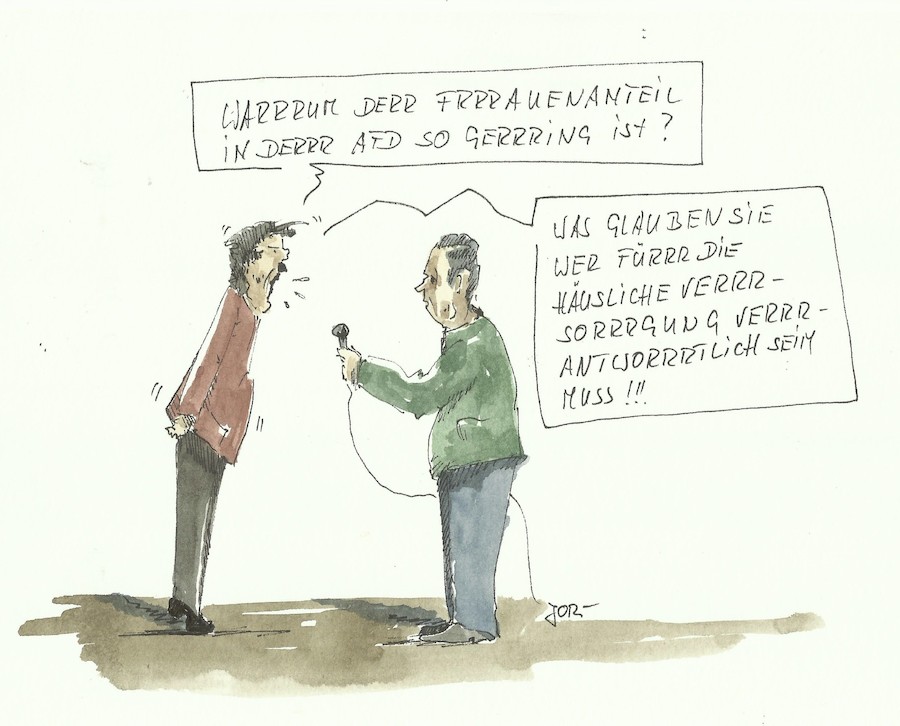 WARRRUM DERR FRRRAUENANTEIL
IN DERRR AFD SO GERRRING ist?
WAS GLAUBEN SIE
WER FÜRRR DIE
HÄUSLICHE VERRR-
SORRRGUNG VERRR-
ANTWORRRTLICH SEIN
MUSS!!!
JOR-